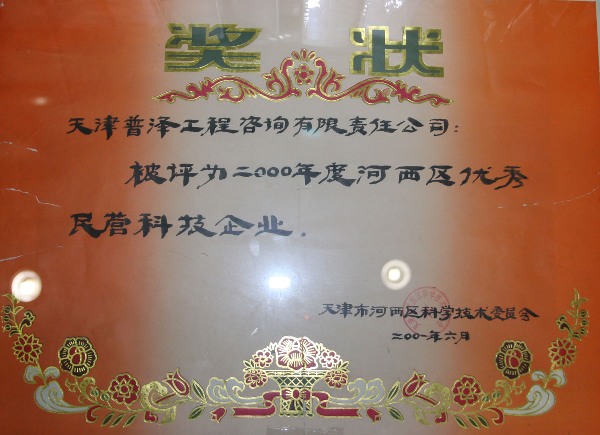 奖状
天津普泽工程咨询有限责任公司：
被评为二000年度河西区优秀
民营科技企业．
天津市河西区科学技术委员会
二00一年六月